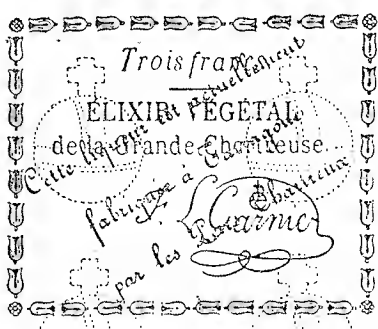 Trois francs
ÉLIXIR VÉGÉTAL
de la Grande Chartreuse
Cette liqueur est actuellement
fabriquée à Tarragone
par les Pères Chartreux
L. Garnier